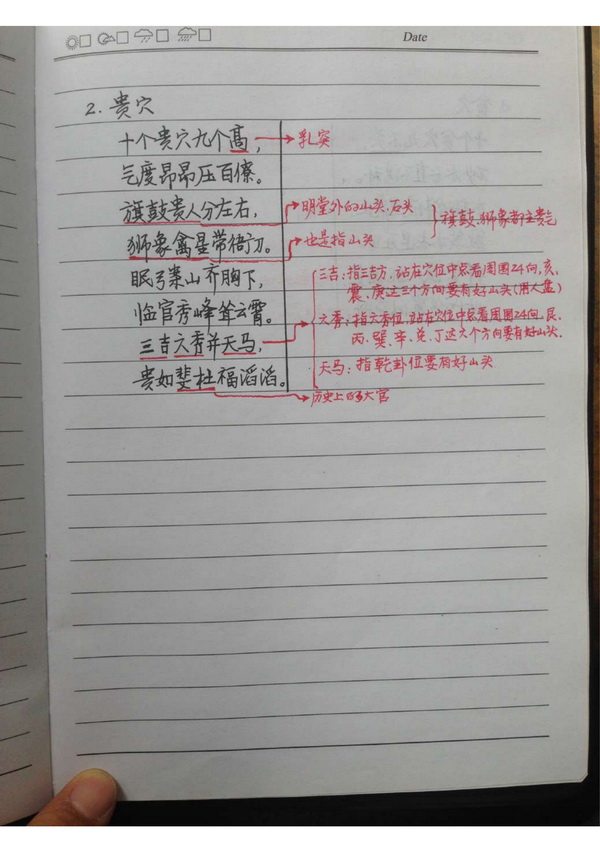 Date
2. 贵穴
十个贵穴九个高，
乳突
气度昂昂压百僚。
旗鼓贵人分左右，
明堂外的山头、石头
旗鼓、狮象都主贵气
狮象禽星带衙刀。
也是指山头
眠弓案山齐胸下，
三吉：指三吉方，站在穴位中总看周围24向，亥、
震、庚这三个方向要有好山头(用人盘)
临官秀峰耸云霄。
六秀：指六秀位，站在穴位中总看周围24向，艮、
丙、巽、辛、兑、丁这六个方向要有好山头.
三吉六秀并天马，
天马：指乾卦位要有好山头
贵如斐杜福滔滔。
历史上的大官